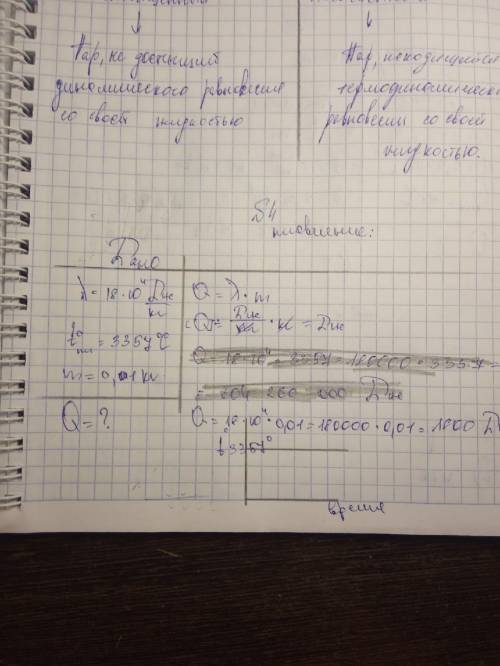 ↓ ↓
Пар, не достигший
динамического равновесия
со своей жидкостью
Пар, находящийся
термодинамическ
равновесии со своей
жидкостью.
плавление:
Дано
λ = 18·10⁴ Дж/кг
t°пл = 3357°C
m = 0,01 кг
Q = ?
Q = λ · m
Q = Дж/кг · кг = Дж
Q = 18·10⁴ · 3357 = 180000 · 3357 =
= 604 260 000 Дж
Q = 18·10⁴ · 0,01 = 180000 · 0,01 = 1800 Д
t 3357°
время